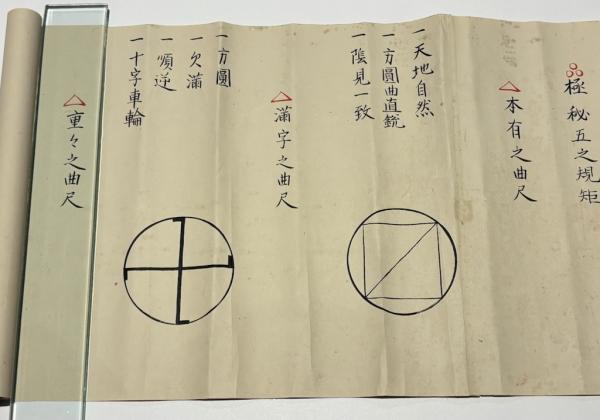 極秘五之規矩
△本有之曲尺
一天地自然
一方圓曲直鋭
一陰見一致
△滿字之曲尺
一方圓
一欠滿
一順逆
一十字車輪
△重々之曲尺